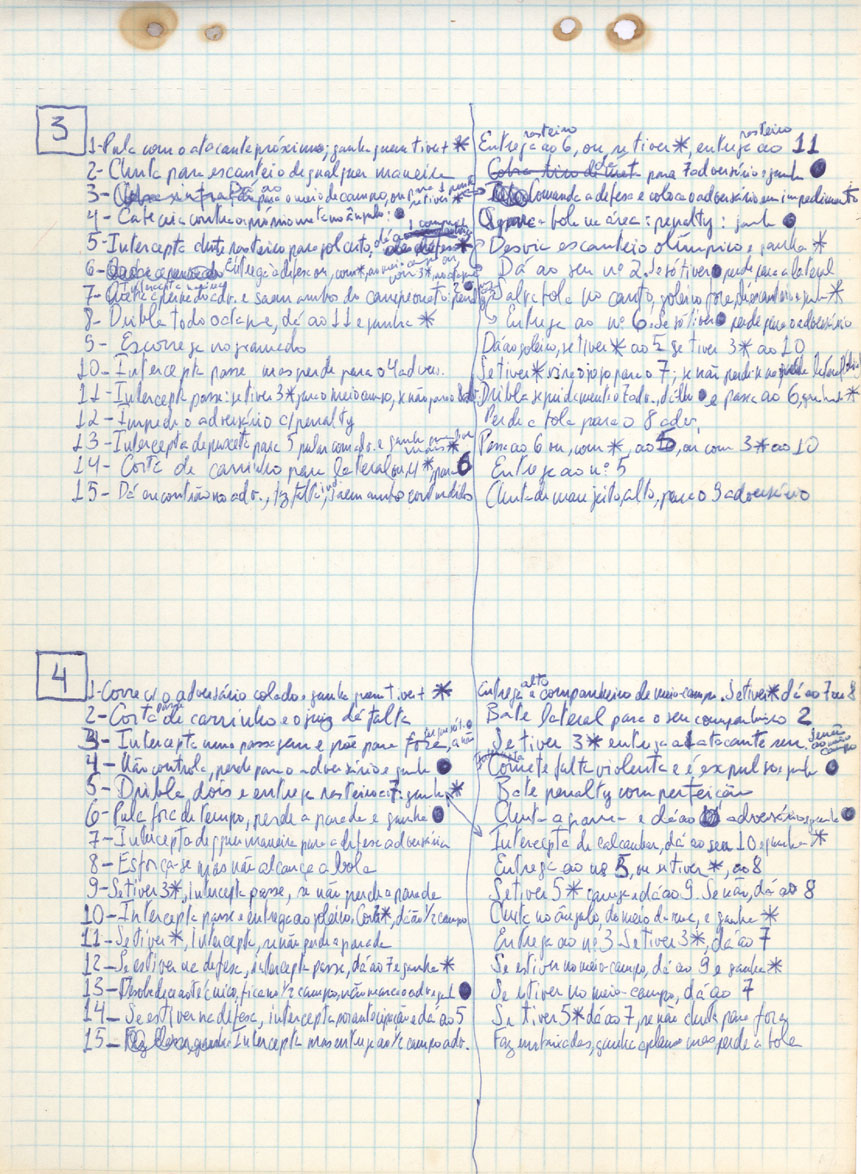 3
1-Pula com o atacante próximo; ganha quem tiver + *
2- Chuta para escanteio de qualquer maneira
3- para o meio de campo, ou
4- Cabeceia contra a própria meta no ângulo: ●
5- Intercepta chute rasteiro para gol certo, *
6- Entrega à defesa ou, com *,
7- adv. e saem ambos do campeonato:
8- Dribla todo o ataque, dá ao 11 e ganha *
9- Escorrega no gramado
10- Intercepta passe mas perde para o 4 advers.
11- Intercepta passe: se tiver 3* para o meio campo, se não para o 8 adv.
12- Impede o adversário c/ penalty
13- Intercepta de puxeta para 5 pular com adv. e ganha quem tiver mais *
14- Corta de carrinho para lateral ou, 4*, para 6
15- Dá encontrão no adv., faz falta, saem ambos contundidos
Entrega rasteiro ao 6, ou, se tiver *, entrega rasteiro ao 11
para 7 adversário e ganha ●
Comanda a defesa e coloca o adversário em impedimento
Apara a bola na área: penalty: ganha ●
Desvia escanteio olímpico e ganha *
Dá ao seu nº 2. Se só tiver ● perde para a lateral
Salva bola no canto, goleiro fora,
Entrega ao nº 6. Se só tiver ● perde para o adversário
Dá ao goleiro, se tiver * ao 5 se tiver 3* ao 10
Se tiver * vira o jogo para o 7; se não perde
Dribla seguidamente o 7 adv., dá-lhe ● e passa ao 6, ganha *
Perde a bola para o 8 adv.
Passa ao 6 ou, com *, ao 5, ou com 3* ao 10
Entrega ao nº 5
Chuta de mau jeito, alto, para o 9 adversário
4
1-Corre c/ o adversário colado e ganha quem tiver + *
2- Corta passe de carrinho e o juiz dá falta
3- Intercepta uma passagem e põe para fora,
4- Não controla, perde para o adversário e ganha ●
5- Dribla dois e entrega rasteiro a 7: ganha *
6- Pula fora de tempo, perde a parada e ganha ●
7- Intercepta de qquer maneira para a defesa adversária
8- Esforça-se mas não alcança a bola
9- Se tiver 3*, intercepta passe, se não perde a parada
10- Intercepta passe e entrega ao goleiro. Com 3*, dá ao ½ campo
11- Se tiver *, intercepta, se não perde a parada
12- Se estiver na defesa, intercepta passe, dá ao 7 e ganha *
13- Desobedece ao técnico, fica no ½ campo, não marca o adv. e ganha ●
14- Se estiver na defesa, intercepta por antecipação e dá ao 5
15- Intercepta mas entrega ao ½ campo adv.
Entrega alto a companheiro de meio-campo. Se tiver * dá ao 7 ou 8
Bate lateral para o seu companheiro 2
Se tiver 3* entrega a 1 atacante seu, senão ao meio campo
Comete falta violenta e é expulso e ganha ●
Bate penalty com perfeição
Chuta a grama e dá ao adversário e ganha ●
Intercepta de calcanhar, dá ao seu 10 e ganha *
Entrega ao nº 5, ou se tiver *, ao 8
Se tiver 5* dá ao 9. Se não, dá ao 8
Chuta no ângulo, do meio da rua, e ganha *
Entrega ao nº 3. Se tiver 3*, dá ao 7
Se estiver no meio-campo, dá ao 9 e ganha *
Se estiver no meio-campo, dá ao 7
Se tiver 5* dá ao 7, se não chuta para fora
Faz embaixadas, ganha aplauso mas perde a bola